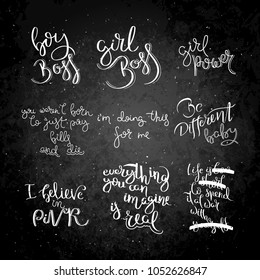 boy
BOSS
girl
BOSS
girl
power
you weren't born
to just pay
bills
and die
i'm doing this
for me
Be
Different
baby
I believe
in
PINK
everything
you can
imagine
is real
Life is
to spend
it at
war
with
shutterstock.com · 1052626847